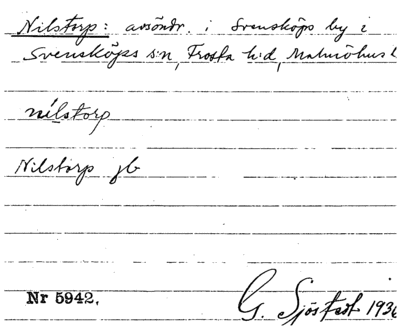 Nilstorp: avsöndr. i Svensköps by i
Svensköps s:n, Frosta h:d, Malmöhus l
nilstorp
Nilstorp jb
Nr 5942.
G. Sjöstedt 1936